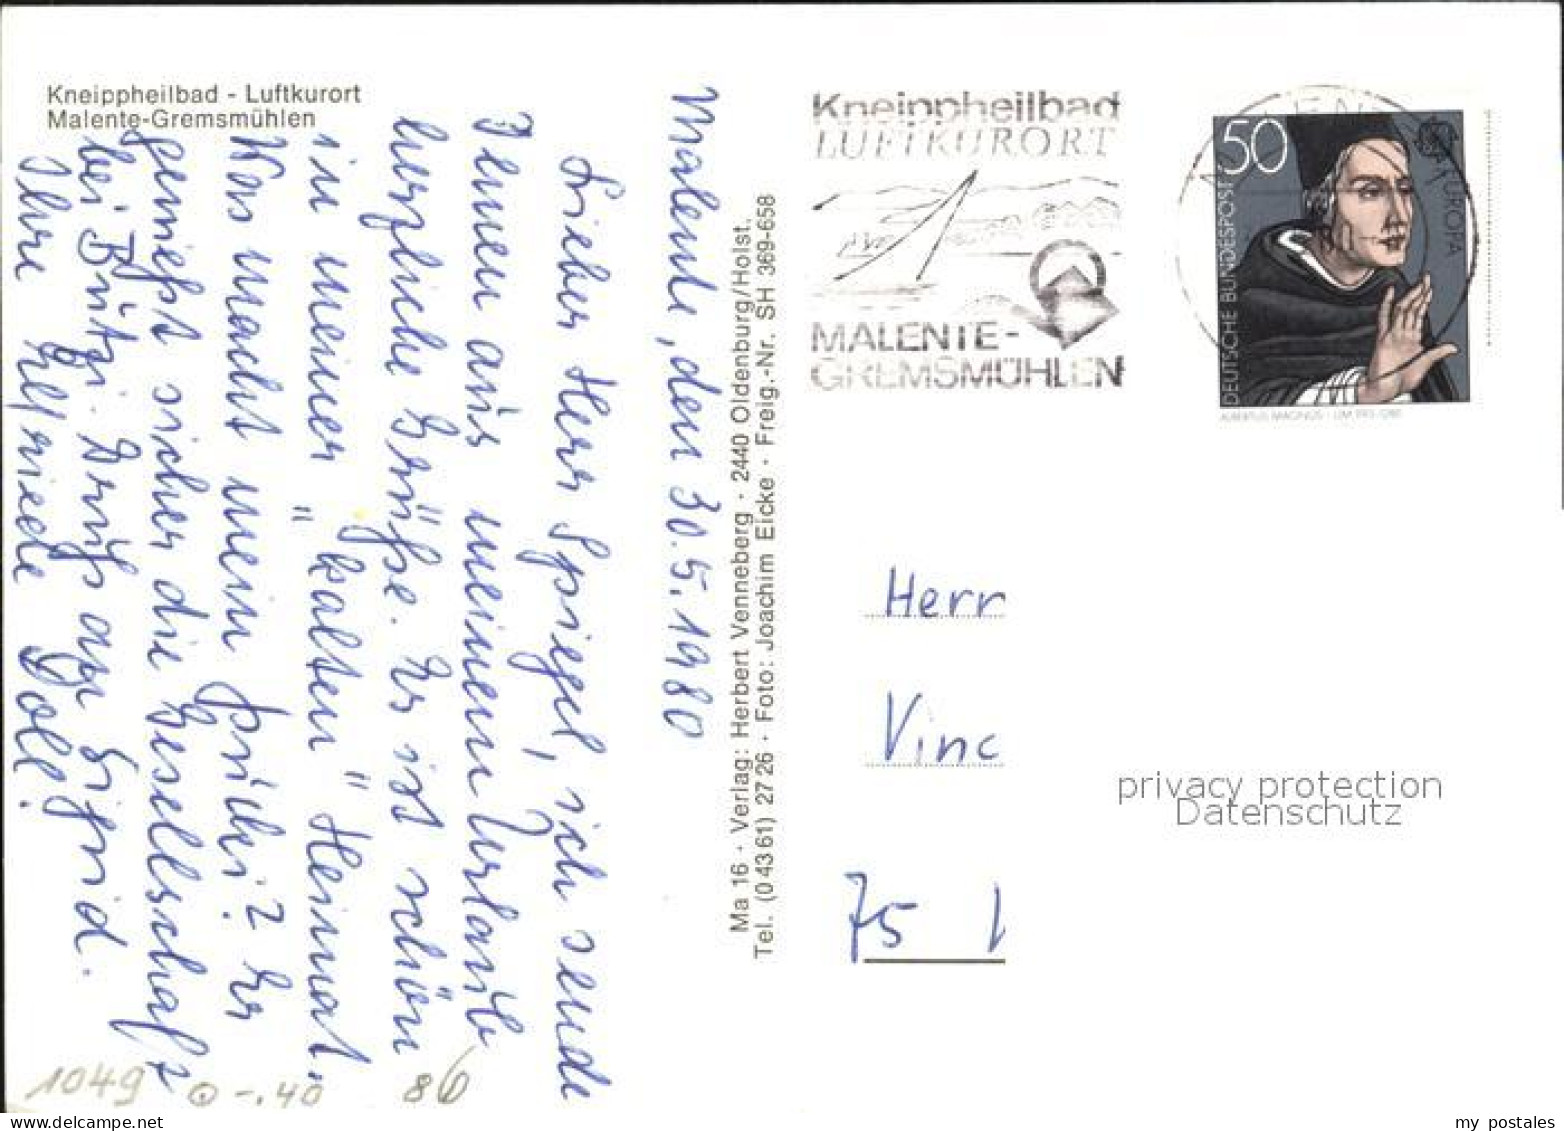 Kneippheilbad - Luftkurort
Malente-Gremsmühlen
Malente, den 30.5.1980
Lieber Herr Spiegel, ich sende
Ihnen aus meinem Urlaub
herzliche Grüße. Es ist schön
in meiner "kalten" Heimat.
Was macht mein Putzi? Er
genießt sicher die Gesellschaft
bei Bützi. Gruß an Sigrid.
Ihre Elfriede Doll.
Ma 16 · Verlag: Herbert Venneberg · 2440 Oldenburg/Holst.
Tel. (0 43 61) 27 26 · Foto: Joachim Eicke · Freig.-Nr. SH 369-658
Kneippheilbad
LUFTKURORT
MALENTE-
GREMSMÜHLEN
50
DEUTSCHE BUNDESPOST
EUROPA
ALBERTUS MAGNUS · UM 1193-1280
Herr
Vinc
75
privacy protection
Datenschutz
1049 -.40 86
my postales